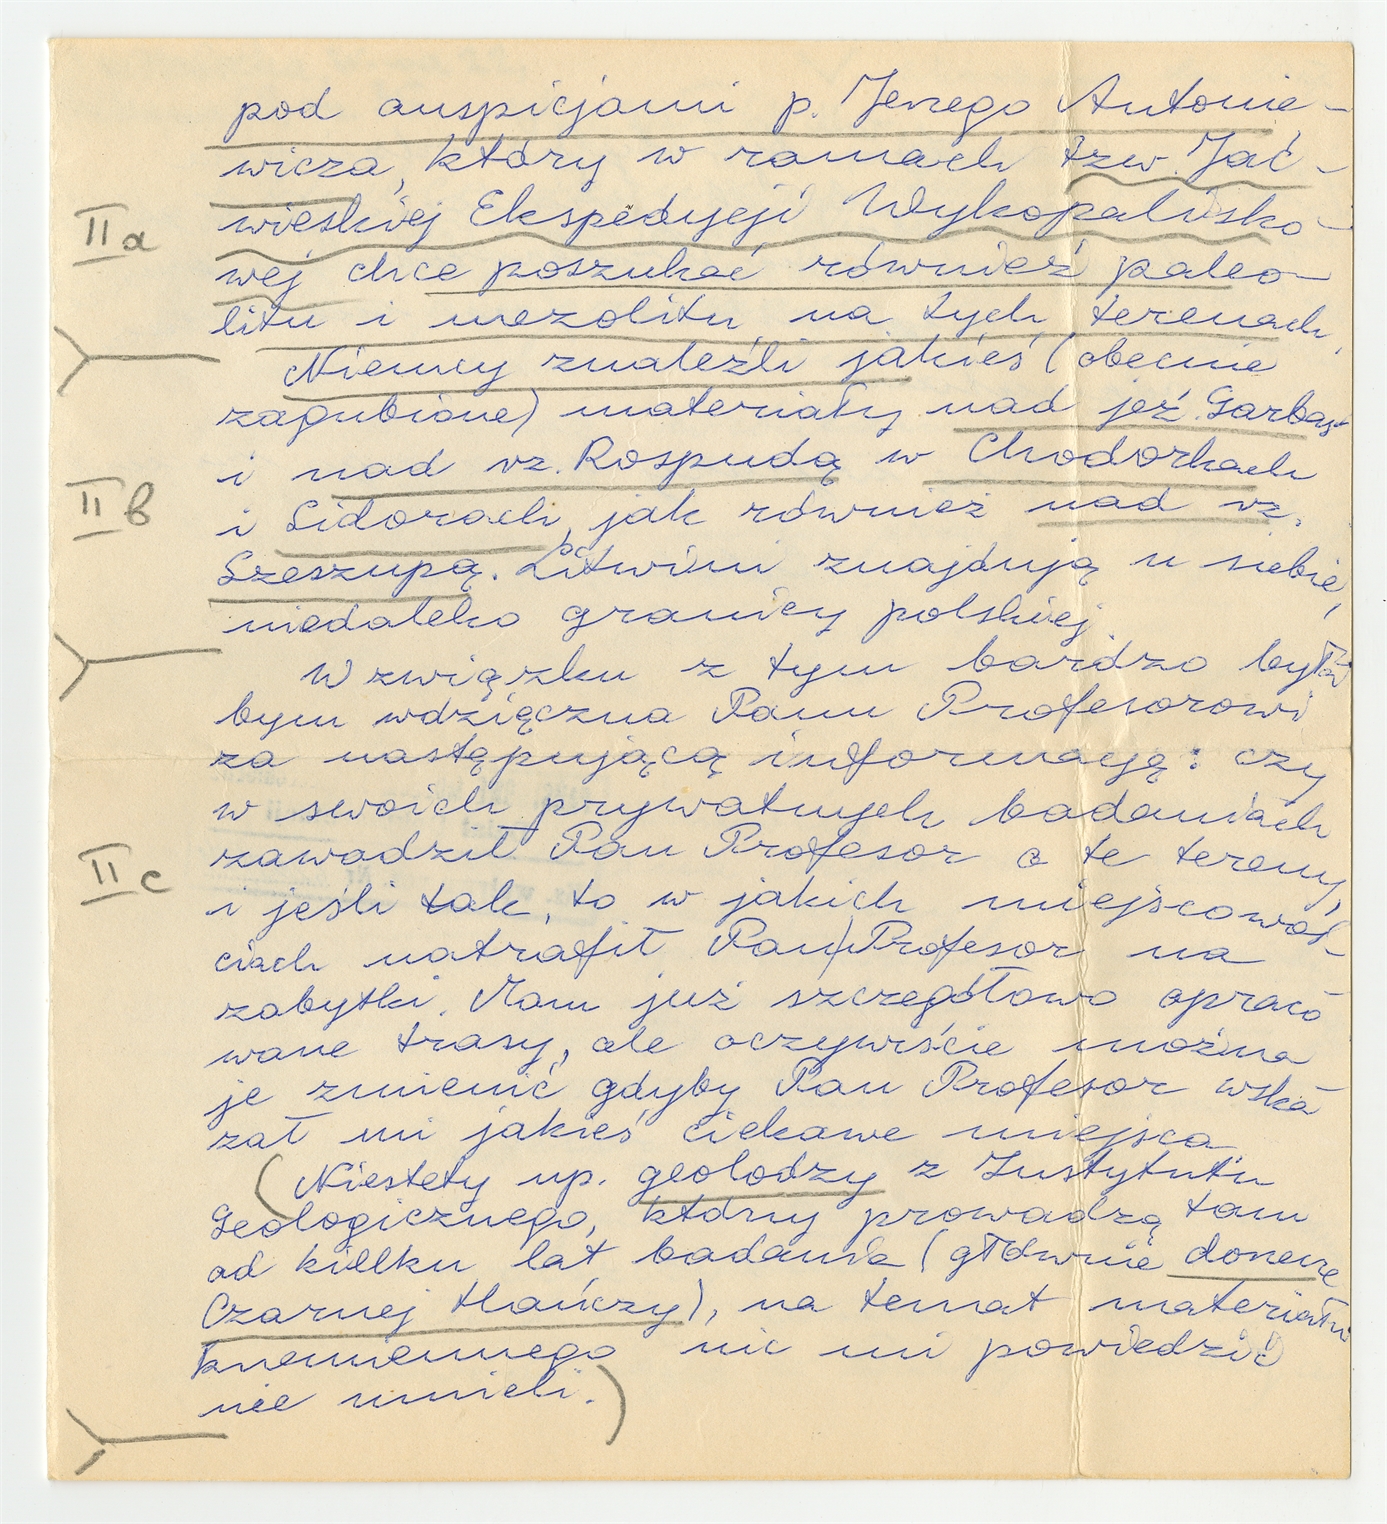 pod auspicjami p. Jerzego Antonie-
wicza, który w ramach tzw. Jać-
wieskiej Ekspedycji Wykopalisko-
IIa
wej chce poszukać również paleo-
litu i mezolitu na tych terenach.
Niemcy znaleźli jakieś (obecnie
zagubione) materiały nad jez. Garbaś
i nad rz. Rospudą w Chodorkach
IIb
i Sidorach, jak również nad rz.
Szeszupą. Litwini znajdują u siebie,
niedaleko granicy polskiej.
W związku z tym bardzo była
bym wdzięczna Panu Profesorowi
za następującą informację: czy
w swoich prywatnych badaniach
zawadził Pan Profesor o te tereny,
IIc
i jeśli tak, to w jakich miejscowoś-
ciach natrafił Pan Profesor na
zabytki. Mam już szczegółowo opraco
wane trasy, ale oczywiście można
je zmienić gdyby Pan Profesor wska
zał mi jakieś ciekawe miejsca.
(Niestety np. geolodzy z Instytutu
Geologicznego, którzy prowadzą tam
od kilku lat badania (głównie dorzecze
Czarnej Hańczy), na temat materiału
krzemiennego nic mi powiedzieć
nie umieli.)